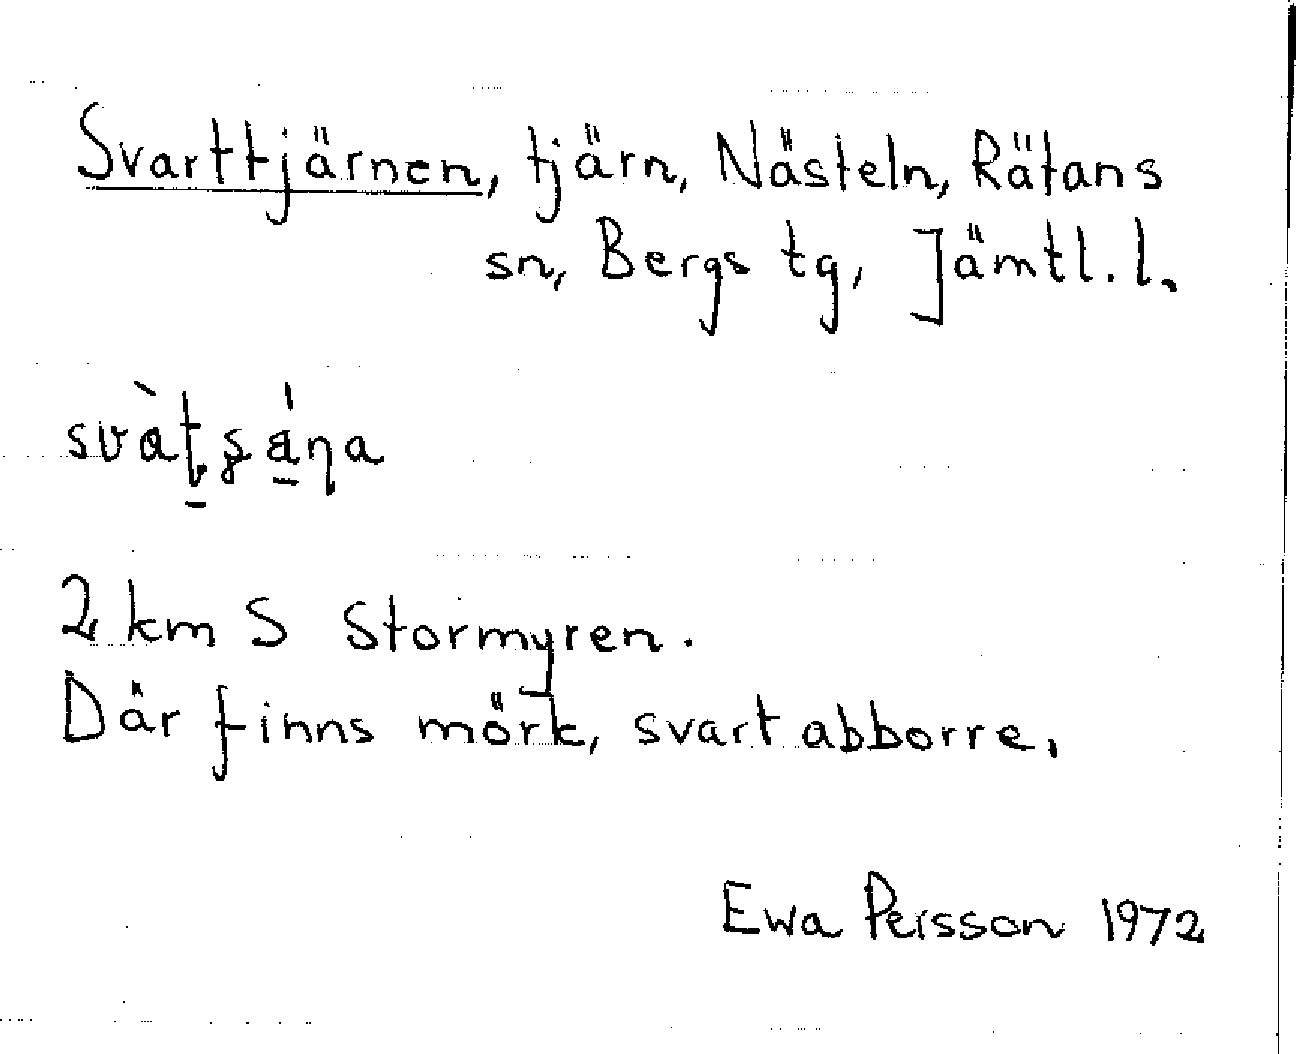 Svarttjärnen, tjärn, Nästeln, Rätans
sn, Bergs tg, Jämtl. l.
2 km S Stormyren.
Där finns mörk, svart abborre.
Ewa Persson 1972